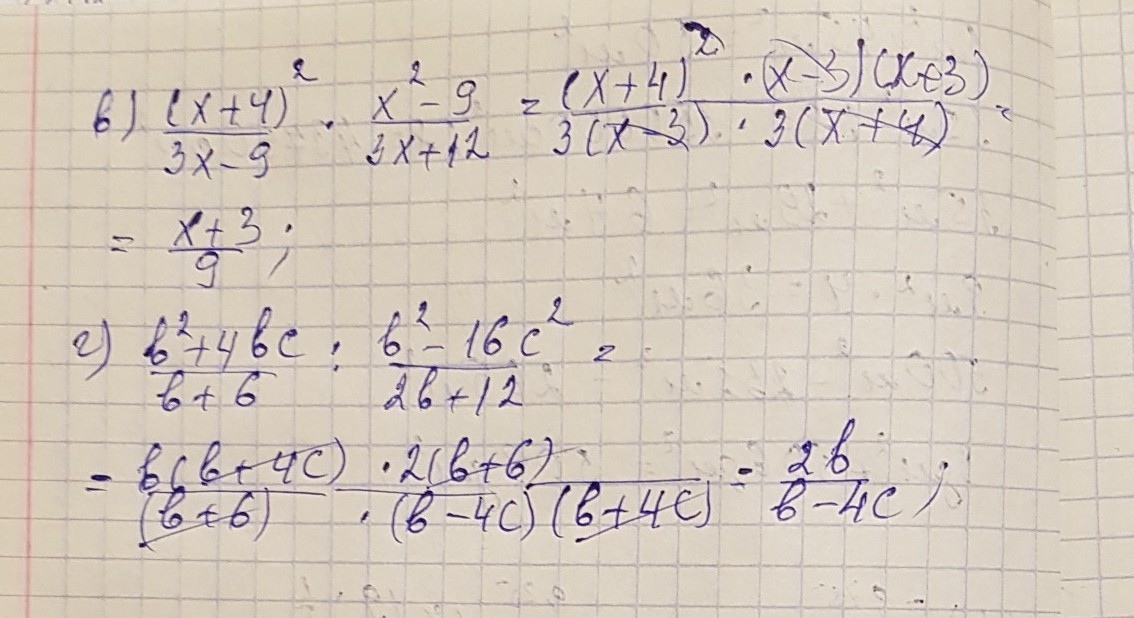 в) (x+4)²/(3x-9) · (x²-9)/(3x+12) = ((x+4)² · (x-3)(x+3))/(3(x-3) · 3(x+4)) =
= (x+3)/9 ;
г) (b²+4bc)/(b+6) : (b²-16c²)/(2b+12) =
= (b(b+4c) · 2(b+6))/((b+6) · (b-4c)(b+4c)) = 2b/(b-4c) ;